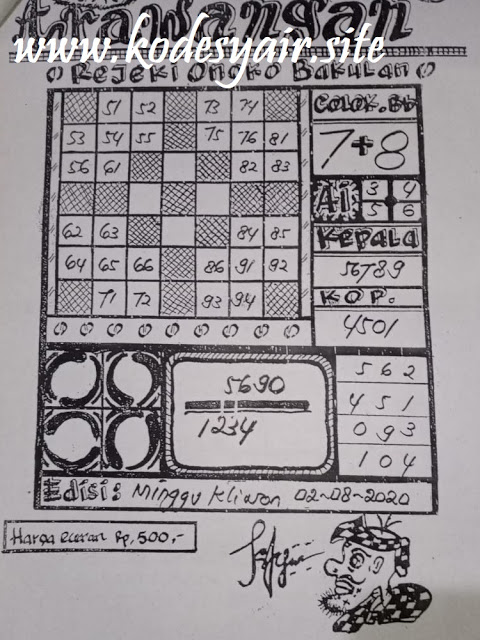 Arawangan
www.kodesyair.site
Rejeki Onoko Bakulan
51 52 73 74
COLOK.BB
53 54 55 75 76 81
7+8
56 61 82 83
Ai 3 4
5 6
62 63 84 85
KEPALA
64 65 66 86 91 92
56789
71 72 93 94
KOP.
4501
5690
1234
562
451
093
104
Edisi: Minggu Kliwon 02-08-2020
Harga eceran Rp, 500,-